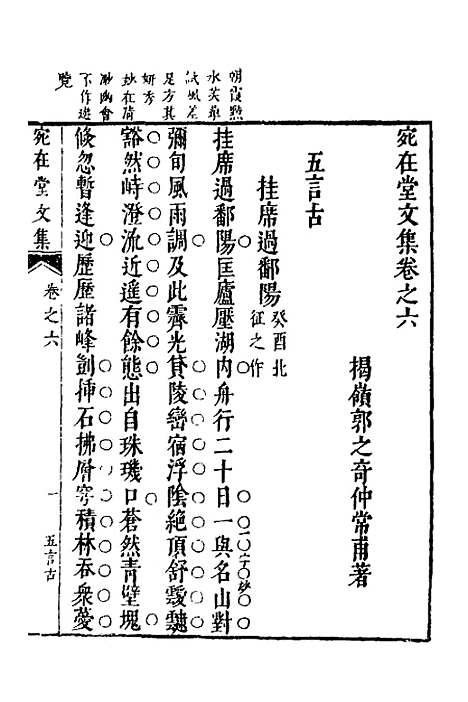 宛在堂文集卷之六
揭嶺郭之奇仲常甫著
五言古
挂席過鄱陽癸酉北征之作
挂席過鄱陽匡廬壓湖內舟行二十日一與名山對
彌旬風雨調及此霽光貸陵巒宿浮陰絕頂舒靉靆
豁然峙澄流近遥有餘態出自珠璣口蒼然靑壁塊
倏忽暫逢迎歷歷諸峰劊揷石拂層穹積林吞衆薆
宛在堂文集
卷之六
一
五言古
朝霞點
水芙蓉
試風差
是方其
妍秀
妙在簡
融幽會
不作遊
覽